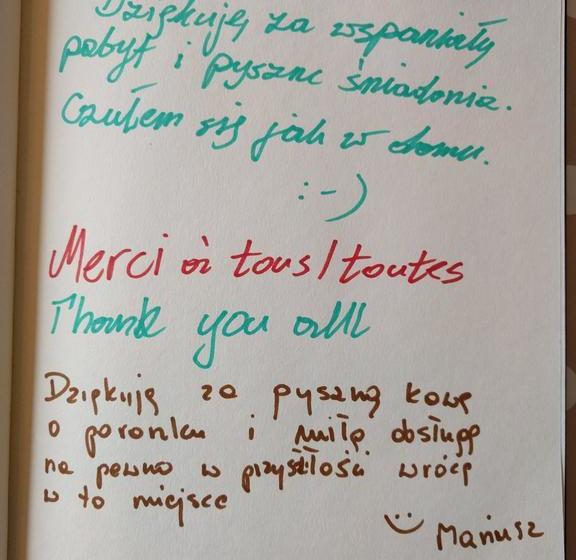 Dziękuję za wspaniały
pobyt i pyszne śniadania.
Czułem się jak w domu.
:-)
Merci à tous/toutes
Thank you all
Dziękuję za pyszną kawę
o poranku i miłą obsługę
na pewno w przyszłości wrócę
w to miejsce
Mariusz